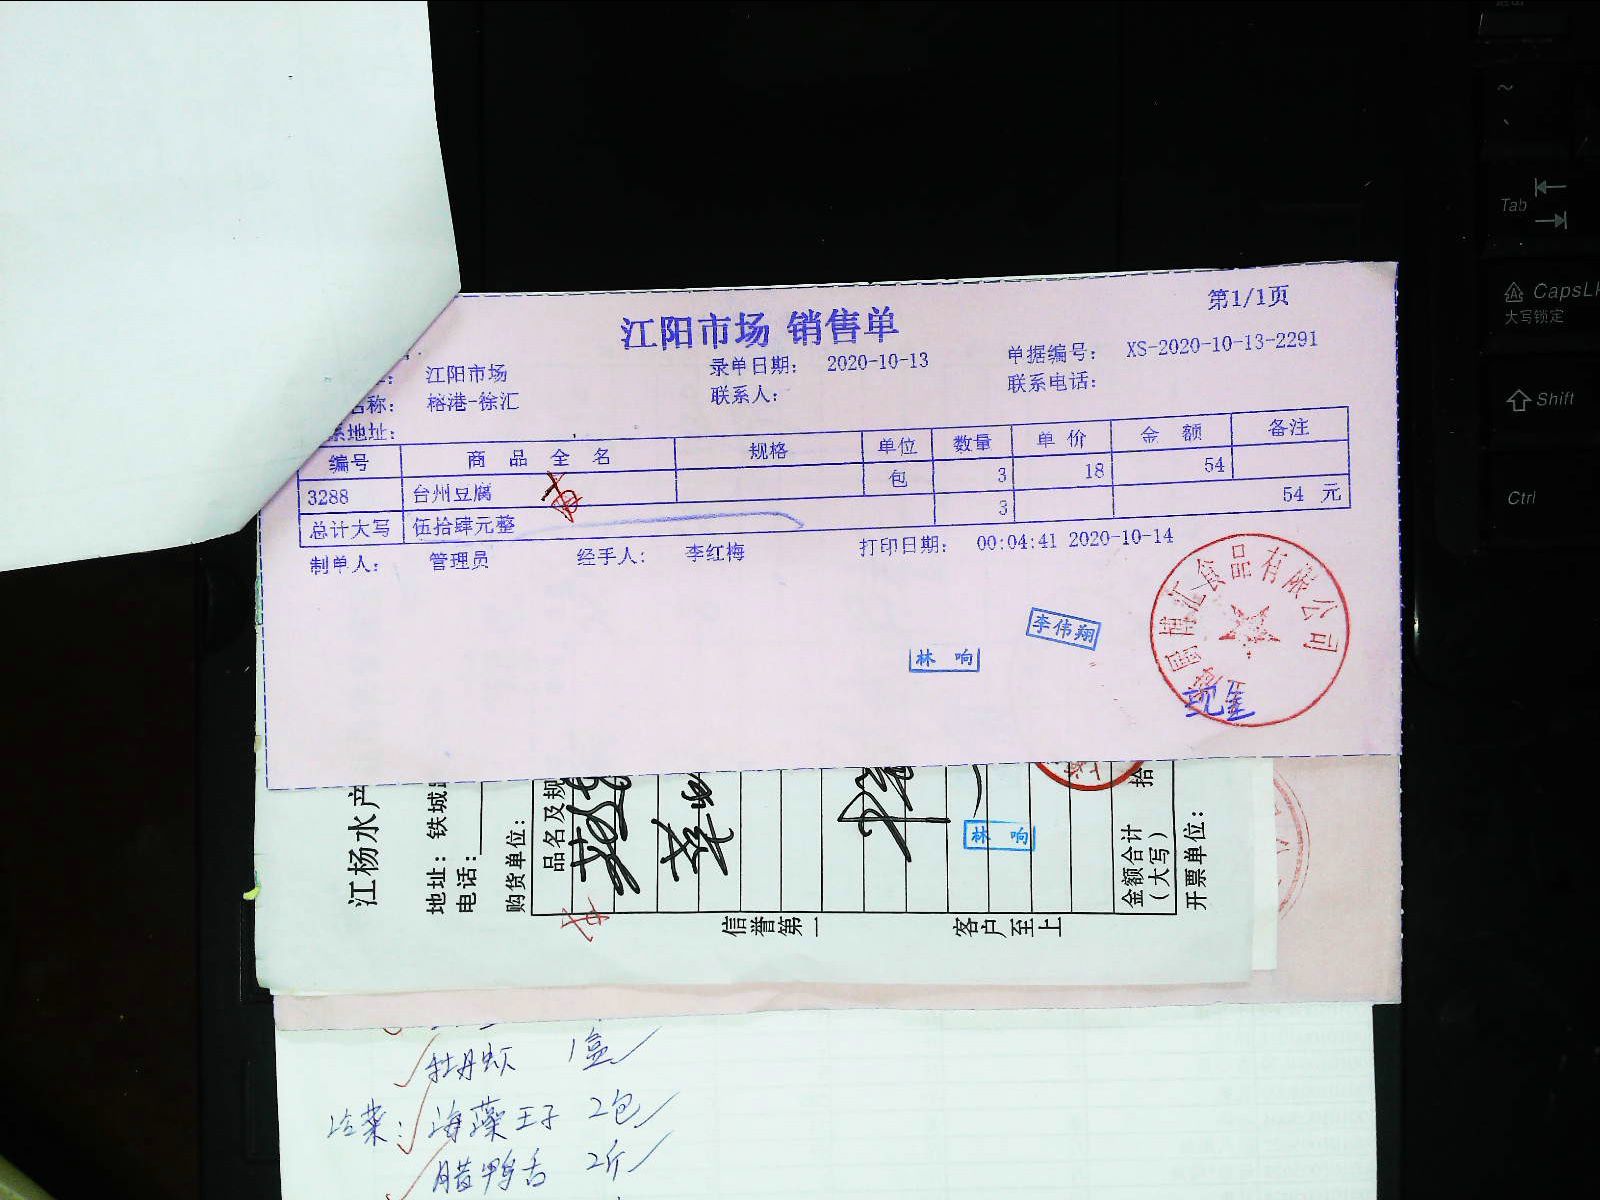 第1/1页
江阳市场 销售单
江阳市场 录单日期: 2020-10-13 单据编号: XS-2020-10-13-2291
名称: 榕港-徐汇 联系人: 联系电话:
系地址:
编号 商品全名 规格 单位 数量 单价 金额 备注
3288 台州豆腐 包 3 18 54
总计大写 伍拾肆元整 3 54 元
制单人: 管理员 经手人: 李红梅 打印日期: 00:04:41 2020-10-14
李伟翔
林响
汇食品有限公司
现金
江杨水产
地址: 铁城
电话:
购货单位:
品名及规
林响
金额合计
(大写)
拾
开票单位:
信誉第一 客户至上
牡丹虾 1盒
冷菜: 海藻王子 2包
腊鸭舌 2斤
Tab
CapsL
大写锁定
Shift
Ctrl